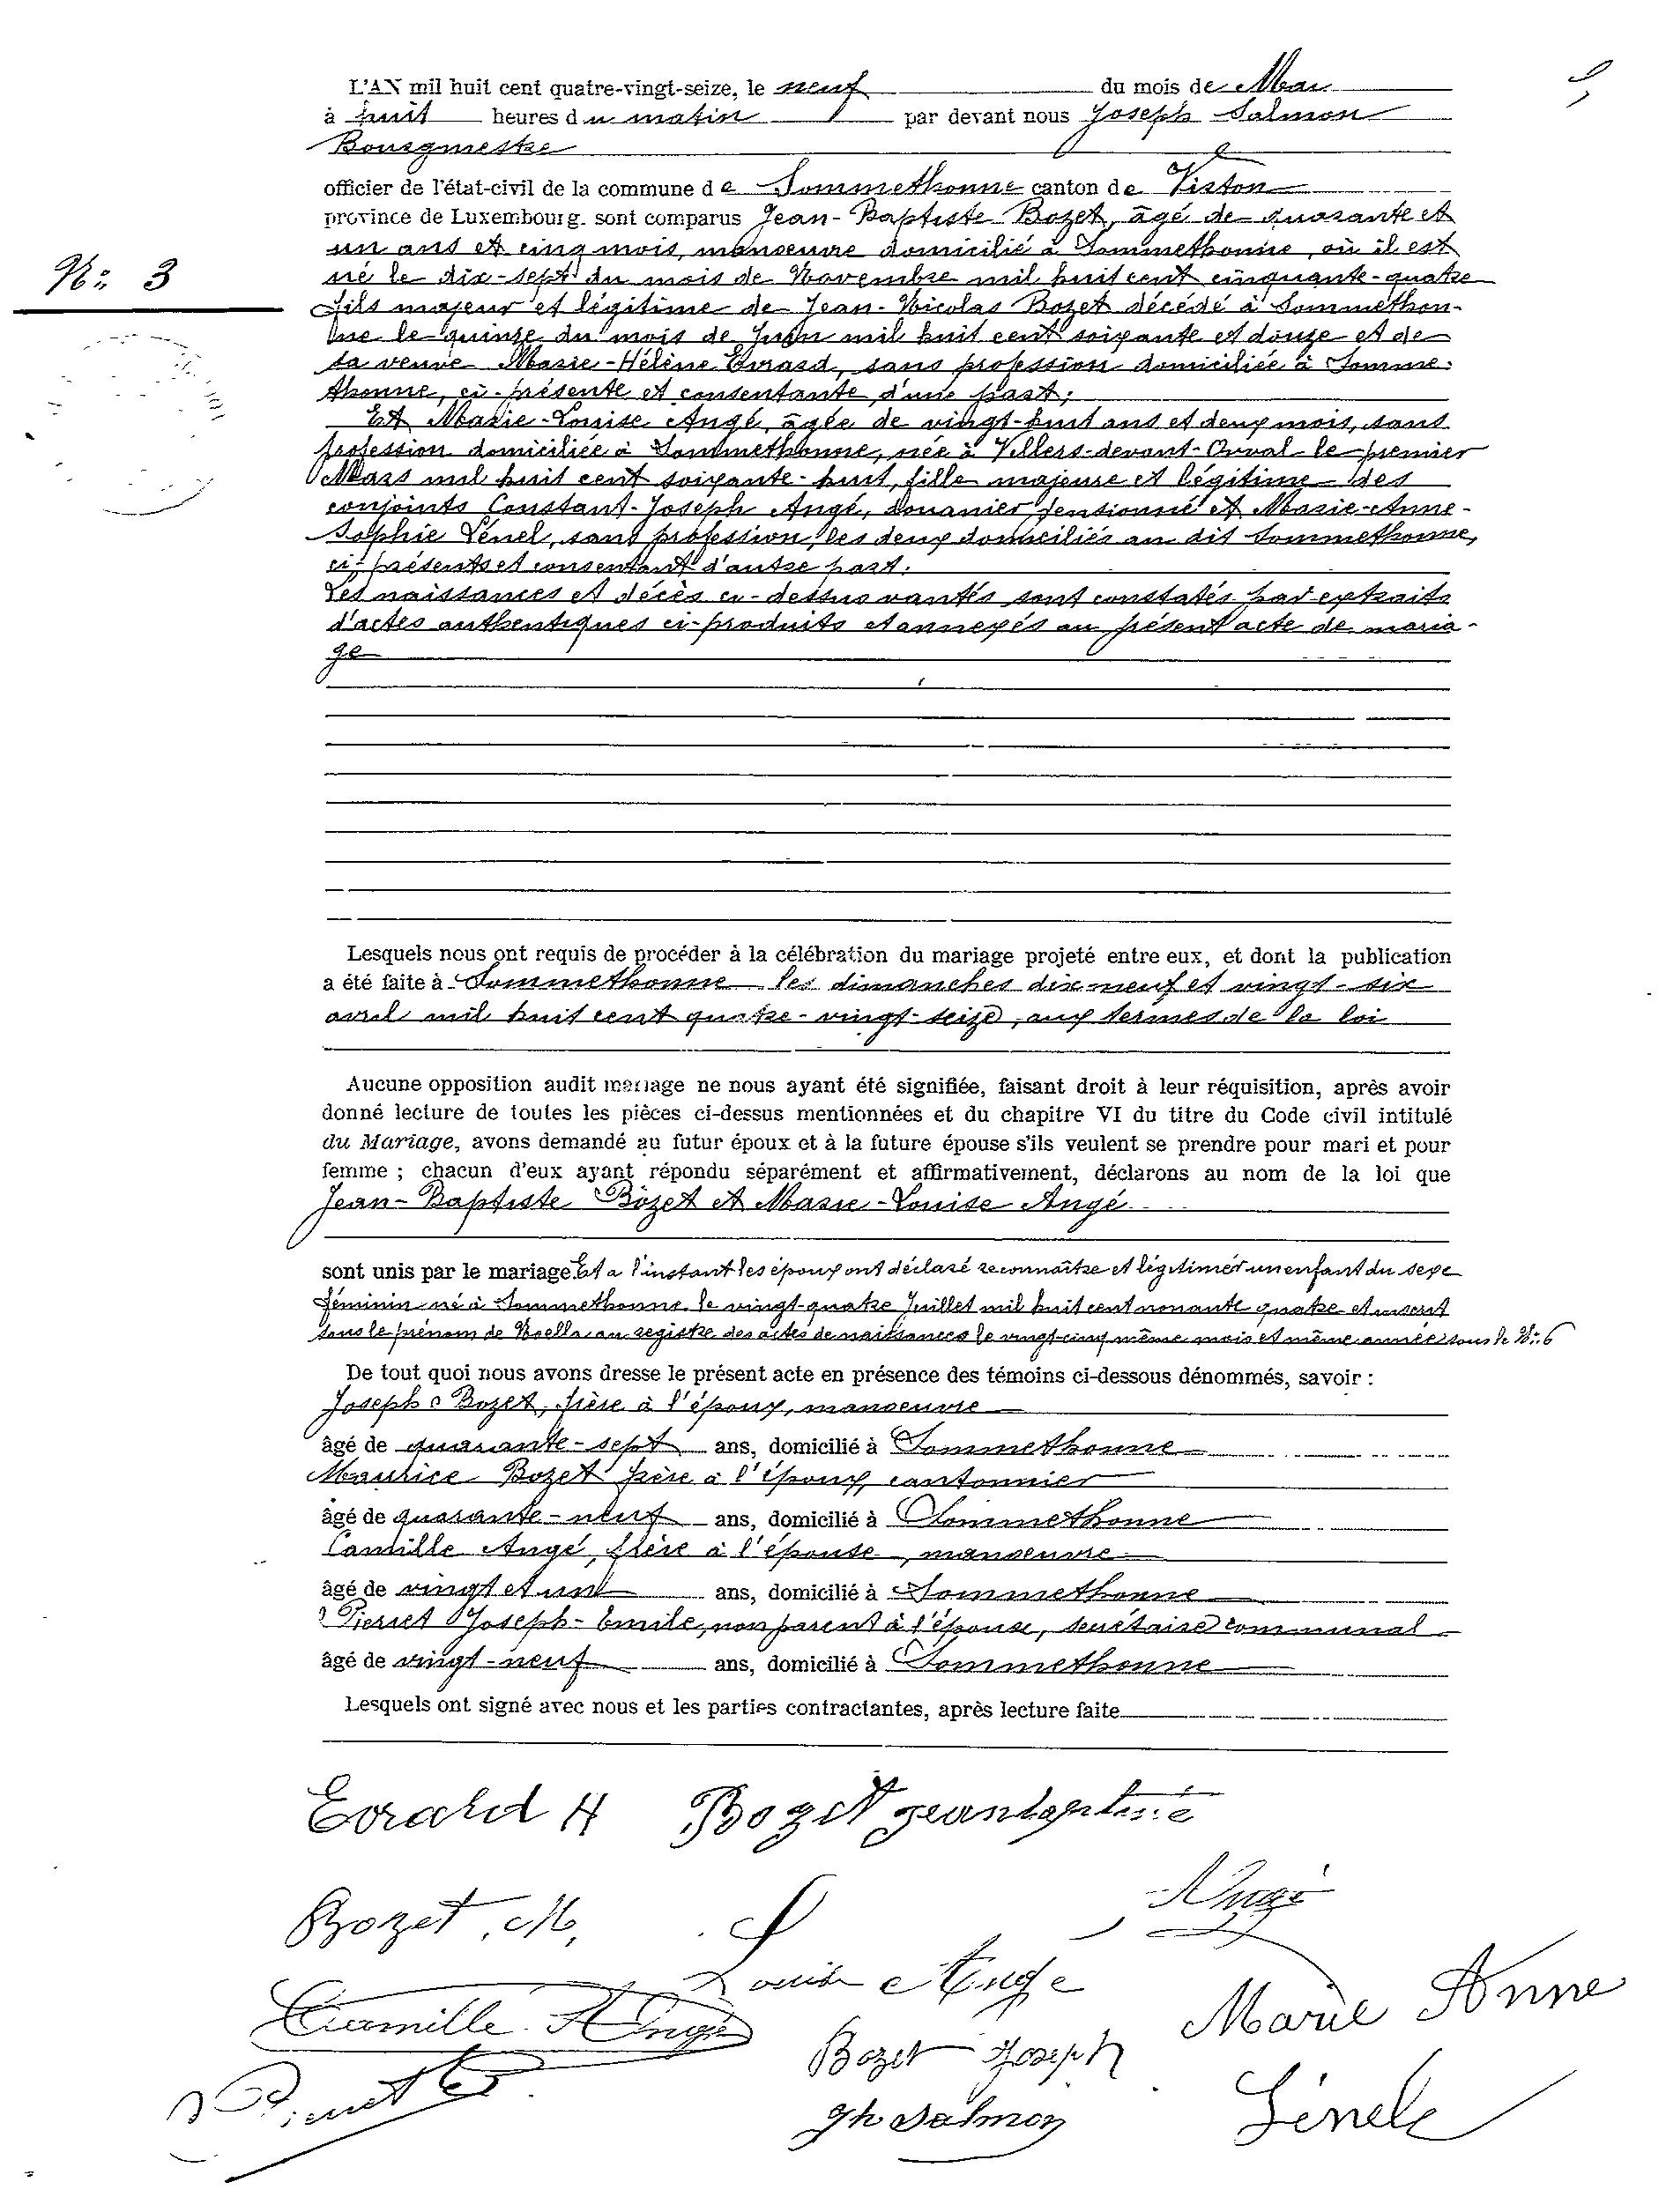 L'AN mil huit cent quatre-vingt-seize, le neuf du mois de Mai
à huit heures du matin par devant nous Joseph Salmon
Bourgmestre
officier de l'état-civil de la commune de Sommethonne canton de Virton
province de Luxembourg. sont comparus Jean-Baptiste Bozet, âgé de quarante et
un ans et cinq mois, manoeuvre domicilié à Sommethonne, où il est
N° 3
né le dix-sept du mois de Novembre mil huit cent cinquante-quatre
fils majeur et légitime de Jean-Nicolas Bozet décédé à Sommethon-
ne le quinze du mois de Juin mil huit cent soixante et douze et de
sa veuve Marie-Hélène Evrard, sans profession domiciliée à Somme-
thonne, ci-présente et consentante d'une part;
Et Marie-Louise Angé, âgée de vingt-huit ans et deux mois, sans
profession domiciliée à Sommethonne, née à Villers-devant-Orval le premier
Mars mil huit cent soixante-huit, fille majeure et légitime des
conjoints Constant-Joseph Angé, douanier pensionné et Marie-Anne-
Sophie Lénel, sans profession, les deux domiciliés au dit Sommethonne,
ci-présents et consentant d'autre part.
Les naissances et décès ci-dessus vantés sont constatés par extraits
d'actes authentiques ci-produits et annexés au présent acte de maria-
ge
Lesquels nous ont requis de procéder à la célébration du mariage projeté entre eux, et dont la publication
a été faite à Sommethonne les dimanches dix-neuf et vingt-six
avril mil huit cent quatre-vingt-seize, aux termes de la loi
Aucune opposition audit mariage ne nous ayant été signifiée, faisant droit à leur réquisition, après avoir
donné lecture de toutes les pièces ci-dessus mentionnées et du chapitre VI du titre du Code civil intitulé
du Mariage, avons demandé au futur époux et à la future épouse s'ils veulent se prendre pour mari et pour
femme ; chacun d'eux ayant répondu séparément et affirmativement, déclarons au nom de la loi que
Jean-Baptiste Bozet et Marie-Louise Angé
sont unis par le mariage. Et a l'instant les époux ont déclaré reconnaître et légitimer un enfant du sexe
féminin né à Sommethonne le vingt-quatre Juillet mil huit cent nonante quatre et inscrit
sous le prénom de Noella au registre des actes de naissances le vingt-cinq même mois et même année sous le N° 6
De tout quoi nous avons dresse le présent acte en présence des témoins ci-dessous dénommés, savoir :
Joseph Bozet, frère à l'époux, manoeuvre
âgé de quarante-sept ans, domicilié à Sommethonne
Maurice Bozet frère à l'époux, cantonnier
âgé de quarante-neuf ans, domicilié à Sommethonne
Camille Angé, frère à l'épouse, manoeuvre
âgé de vingt et un ans, domicilié à Sommethonne
Pierret Joseph-Emile, non parent à l'épouse, secrétaire communal
âgé de vingt-neuf ans, domicilié à Sommethonne
Lesquels ont signé avec nous et les parties contractantes, après lecture faite
Evrard H Bozet jeanbaptiste
Angé
Bozet M,
Louise Angé
Camille Angé
Marie Anne
Bozet Joseph
Jh Salmon
Lénele